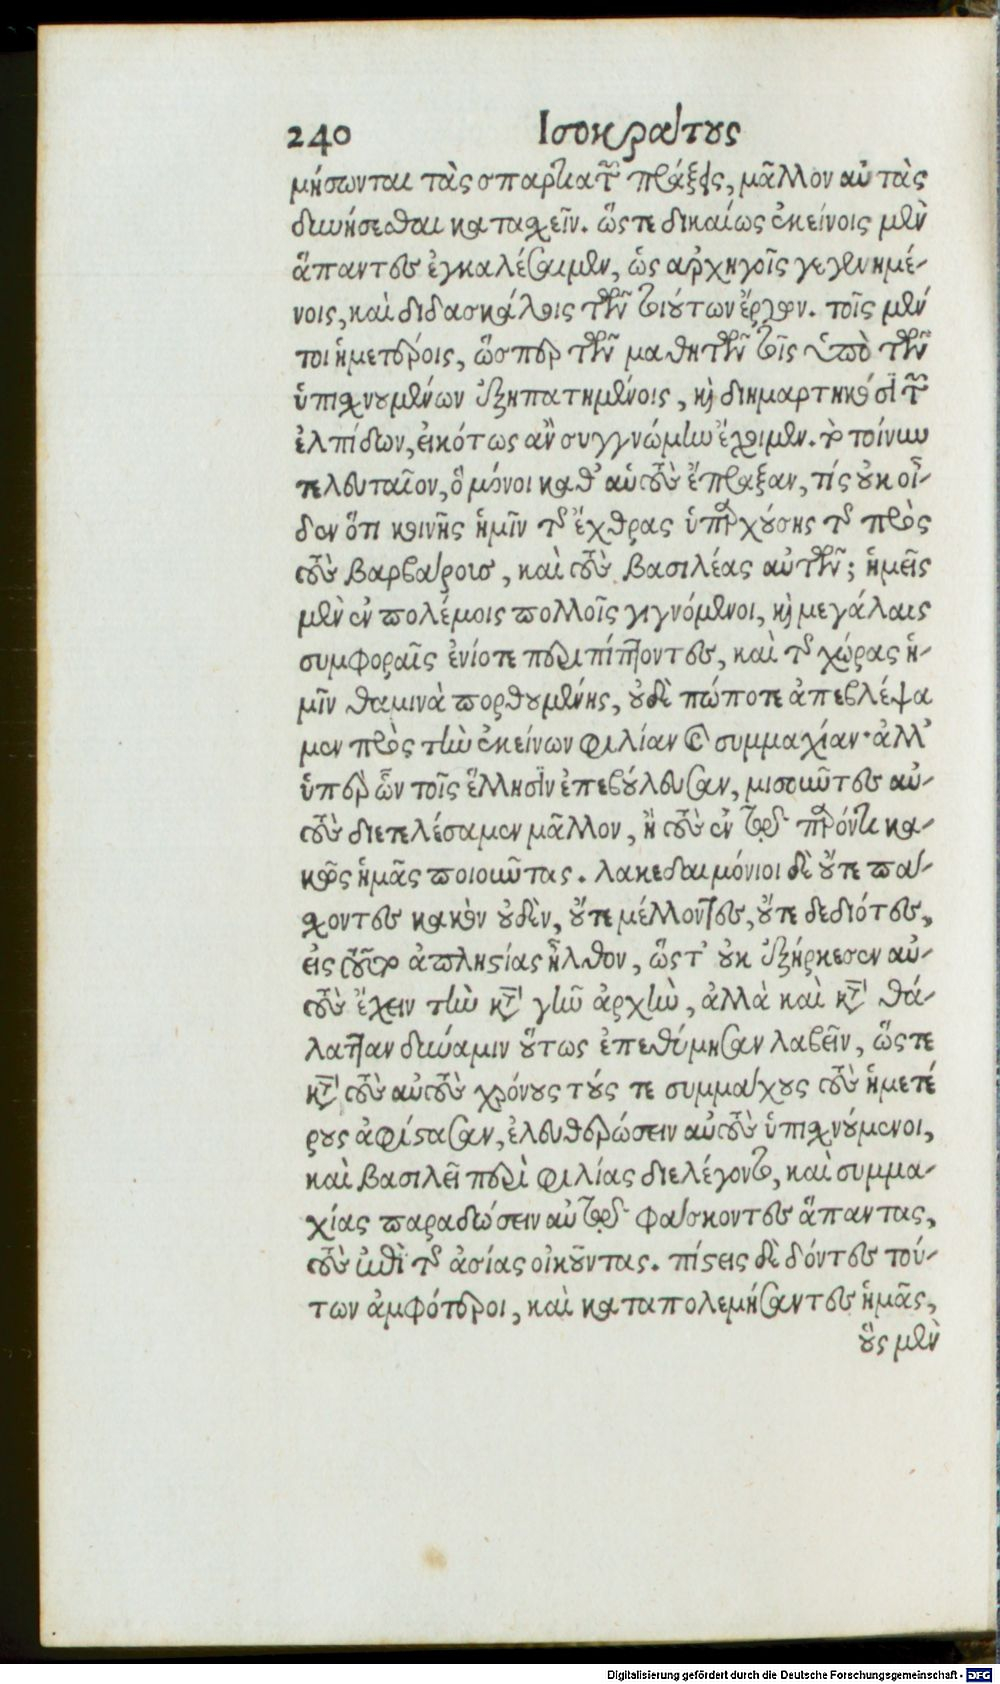 240 Ισοκράτους
μήσωνται τὰς σπαρτιατῶν πράξεις, μᾶλλον αὐτὰς
δυνήσεσθαι κατασχεῖν. ὥςτε δικαίως ἐκείνοις μὲν
ἅπαντες ἐγκαλέσαιμεν, ὡς ἀρχηγοῖς γεγενημέ-
νοις, καὶ διδασκάλοις τῶν τοιούτων ἔργων. τοῖς μέν
τοι ἡμετέροις, ὥσπερ τῶν μαθητῶν τοῖς ὑπὸ τῶν
ὑπισχνουμένων ἐξηπατημένοις, καὶ διημαρτηκόσι τῶν
ἐλπίδων, εἰκότως ἂν συγγνώμην ἔχοιμεν. τὸ τοίνυν
τελευταῖον, ὃ μόνοι καθ' αὑτοὺς ἔπραξαν, τίς οὐκ οἶ-
δεν ὅτι κοινῆς ἡμῖν τῆς ἔχθρας ὑπαρχούσης τῆς πρὸς
τοὺς βαρβάρους, καὶ τοὺς βασιλέας αὐτῶν; ἡμεῖς
μὲν ἐν πολέμοις πολλοῖς γιγνόμενοι, καὶ μεγάλαις
συμφοραῖς ἐνίοτε περιπίπτοντες, καὶ τῆς χώρας ἡ-
μῖν θαμινὰ πορθουμένης, οὐδὲ πώποτε ἀπεβλέψα
μεν πρὸς τὴν ἐκείνων φιλίαν καὶ συμμαχίαν· ἀλλ'
ὑπὲρ ὧν τοῖς ἕλλησιν ἐπεβούλευσαν, μισοῦντες αὐ-
τοὺς διετελέσαμεν μᾶλλον, ἢ τοὺς ἐν τῷ παρόντι κα-
κῶς ἡμᾶς ποιοῦντας. λακεδαιμόνιοι δὲ οὔτε πά-
σχοντες κακὸν οὐδὲν, οὔτε μέλλοντες, οὔτε δεδιότες,
εἰς τοῦτο ἀπληστίας ἦλθον, ὥςτ' οὐκ ἐξήρκεσεν αὐ-
τοὺς ἔχειν τὴν κατὰ γῆν ἀρχὴν, ἀλλὰ καὶ κατὰ θά-
λατταν δύναμιν οὕτως ἐπεθύμησαν λαβεῖν, ὥςτε
κατὰ τοὺς αὐτοὺς χρόνους τούς τε συμμάχους τοὺς ἡμετέ
ρους ἀφίστασαν, ἐλευθερώσειν αὐτοὺς ὑπισχνούμενοι,
καὶ βασιλεῖ περὶ φιλίας διελέγοντο, καὶ συμμα-
χίας παραδώσειν αὐτῷ φάσκοντες ἅπαντας,
τοὺς ἐπὶ τῆς ἀσίας οἰκοῦντας. πίστεις δὲ δόντες τού-
των ἀμφότεροι, καὶ καταπολεμήσαντες ἡμᾶς,
οὓς μὲν
Digitalisierung gefördert durch die Deutsche Forschungsgemeinschaft - DFG